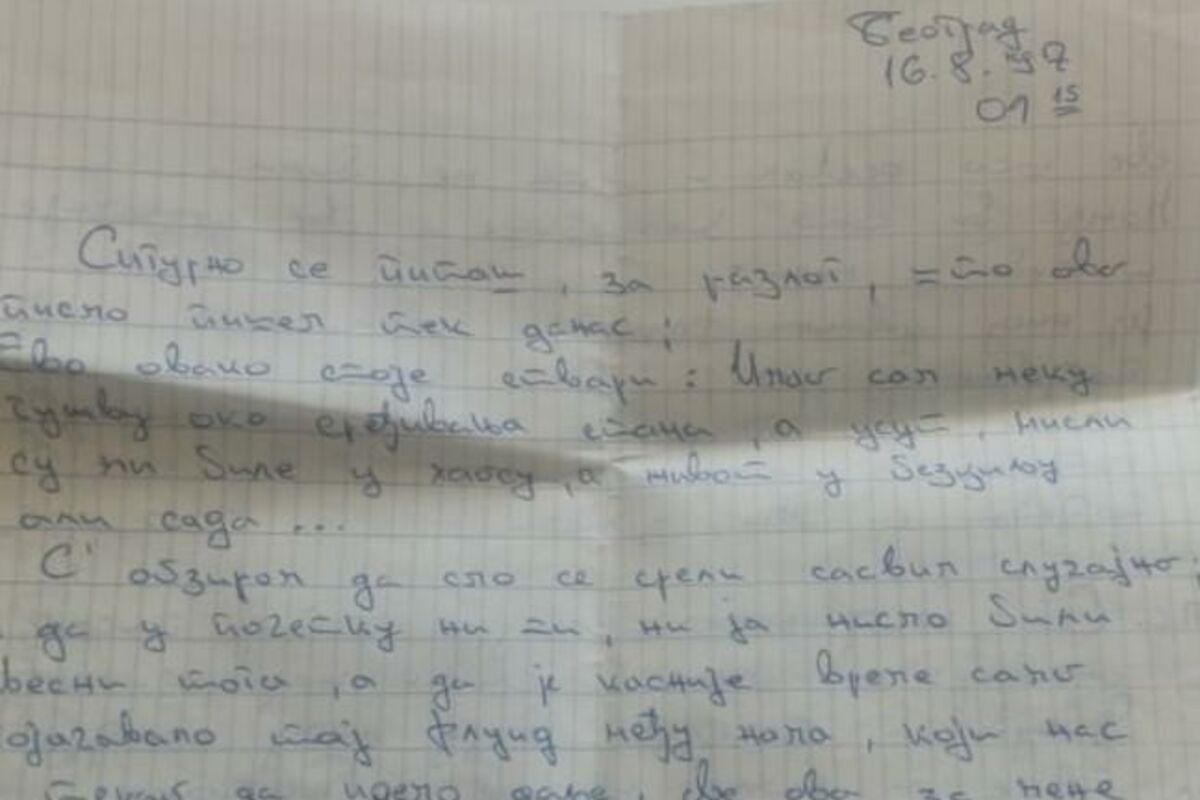 Београд
16.8.97
01 15
Сигурно се питаш, за разлог, што ово
писмо пишем тек данас;
Ево овако стоје ствари: Имао сам неку
гужву око сређивања стана, а успут, мисли
су ми биле у хаосу, а живот у безумљу
али сада ...
С' обзиром да смо се срели сасвим случајно,
да у почетку ни ти, ни ја нисмо били
весни тога, а да је касније време само
ојачавало тај флуид међу нама, који нас
да идемо даље, све ово за мене